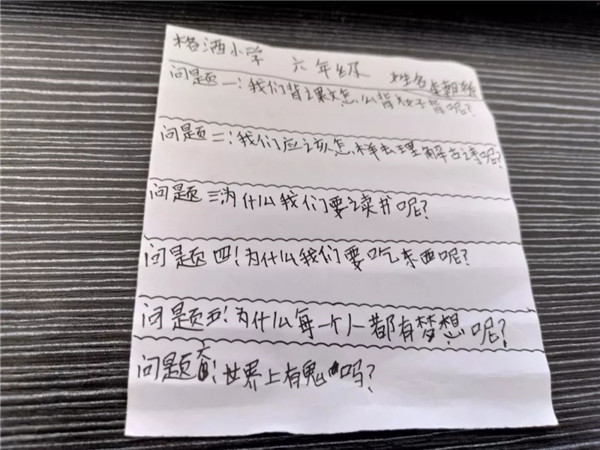 格洒小学 六年级 姓名
问题一:我们背课文怎么背才会背呢?
问题二:我们应该怎样去理解古诗呢?
问题三:为什么我们要读书呢?
问题四!为什么我们要吃东西呢?
问题五!为什么每一个人都有梦想呢?
问题六!世界上有鬼吗?